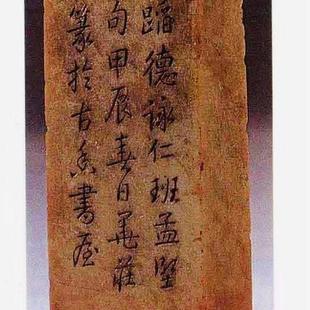 蹈德詠仁班孟堅
句甲辰春日華莊
篆於古香書屋